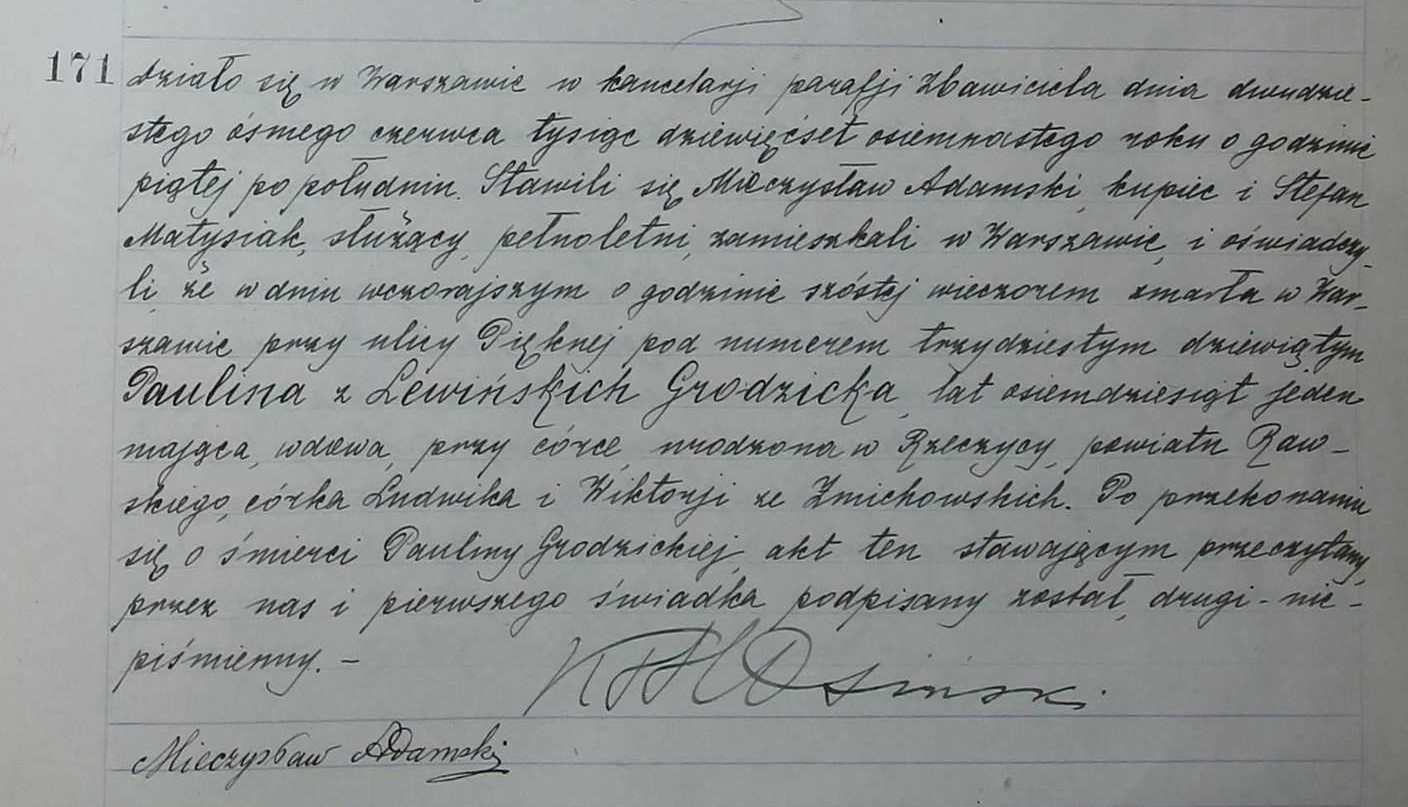 171 Działo się w Warszawie w kancelarji parafji Zbawiciela dnia dwudzie-
stego ósmego czerwca tysiąc dziewięćset osiemnastego roku o godzinie
piątej po południu. Stawili się Mieczysław Adamski, kupiec i Stefan
Matysiak, służący, pełnoletni, zamieszkali w Warszawie, i oświadczy-
li, że w dniu wczorajszym o godzinie szóstej wieczorem zmarła w War-
szawie przy ulicy Pięknej pod numerem trzydziestym dziewiątym
Paulina z Lewińskich Grodzicka, lat osiemdziesiąt jeden
mająca, wdowa, przy córce, urodzona w Rzeczycy, powiatu Raw-
skiego, córka Ludwika i Wiktorji ze Żmichowskich. Po przekonaniu
się o śmierci Pauliny Grodzickiej, akt ten stawającym przeczytany,
przez nas i pierwszego świadka podpisany został, drugi - nie-
piśmienny. -
Mieczysław Adamski